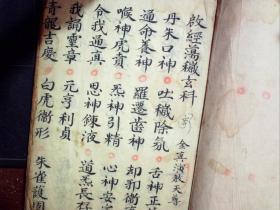 啟經蕩穢玄科
金真演教天尊
丹朱口神 吐穢除氛 舌神正
通命養神 羅邏齒神 卻邪衛
喉神虎賁 炁神引精 心神安
令我通真 思神鍊液 道炁長存
我誦靈章 元亨利貞
青龍吉慶 白虎衛形 朱雀護